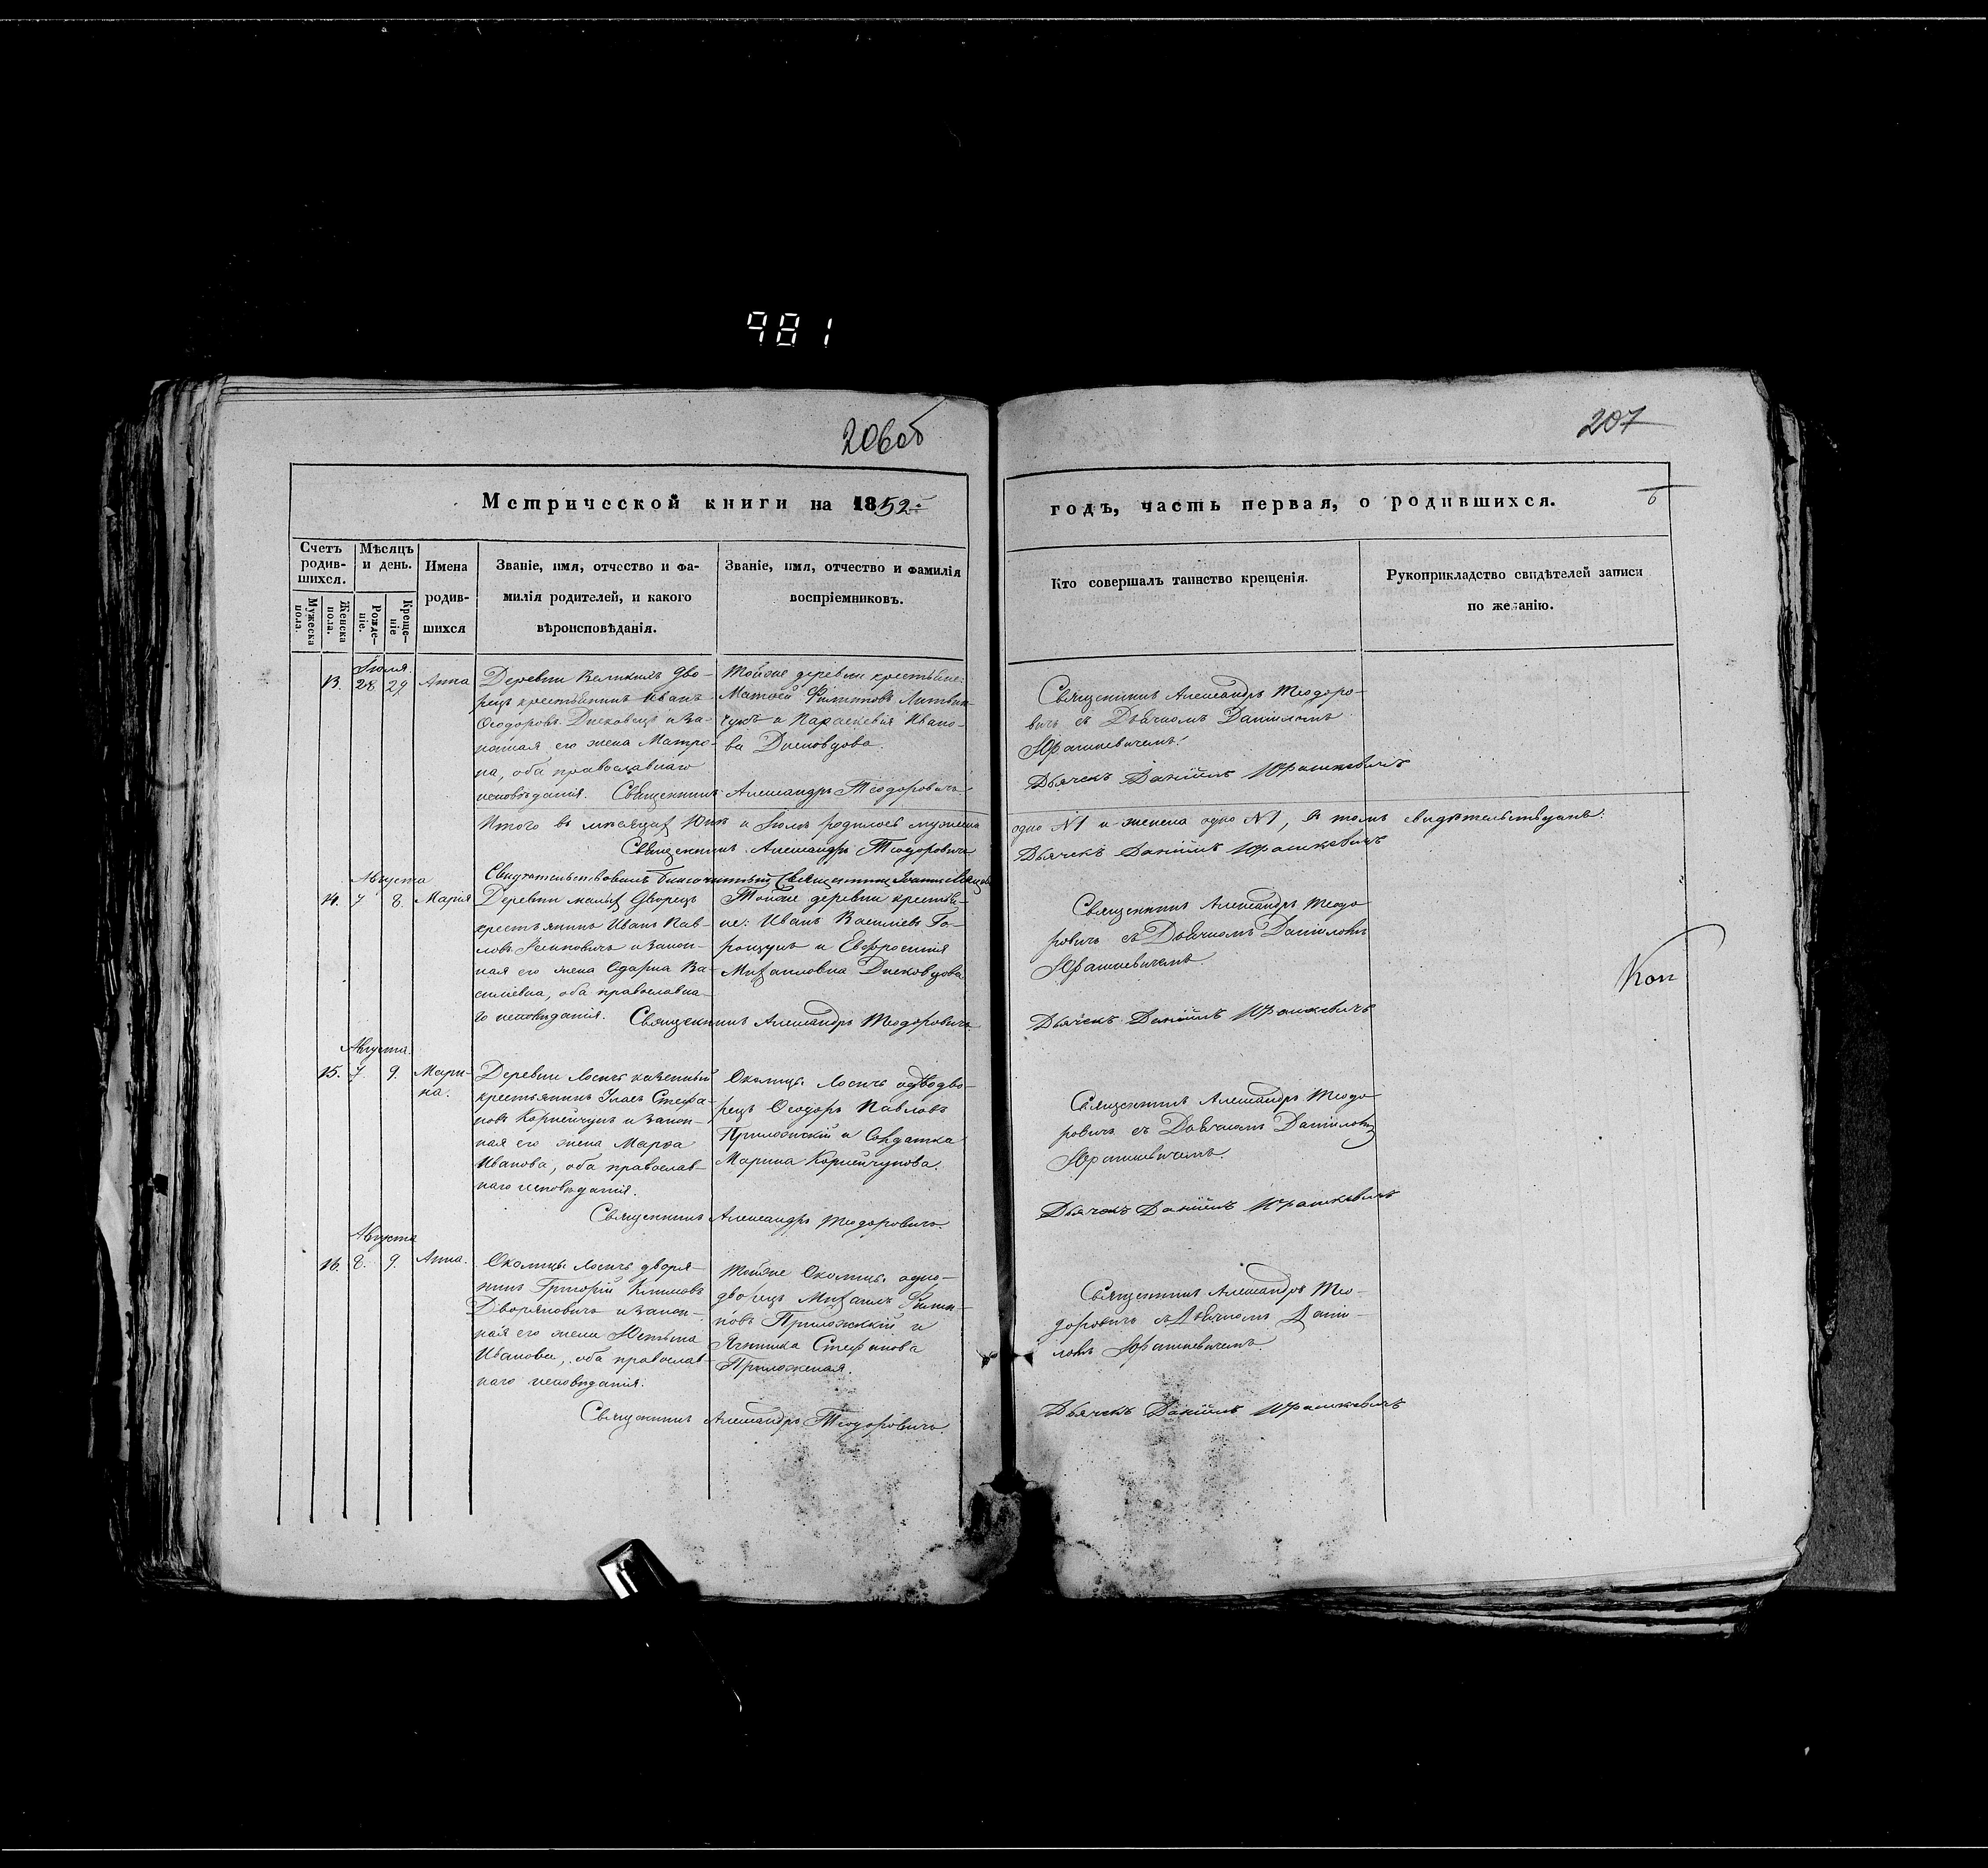 981
206об
207
Метрической книги на 1852
годъ, часть первая, о родившихся.
6
Счетъ родив-шихся.
Мужеска пола.
Женска пола.
Мѣсяцъ и день.
Рожде-ніе.
Креще-ніе
Имена родив-шихся
Званіе, имя, отчество и фа-
милія родителей, и какого
вѣроисповѣданія.
Званіе, имя, отчество и фамилія
воспріемниковъ.
Кто совершалъ таинство крещенія.
Рукоприкладство свидѣтелей записи
по желанію.
Іюля
13. 28 29 Анна
Деревни Великихъ Дво-
рецъ крестьянинъ Иванъ
Ѳеодоровъ и за-
конная его жена Матро-
на, оба православнаго
исповѣданія. Священникъ Александръ Теодоровичъ
Тойже деревни крестьяне:
Матѳей Филиповъ Литвин-
чукъ и Параскевія Ивано-
ва
Священникъ Александръ Теодоро-
вичъ съ Дьячкомъ Даніиломъ
Юрашкевичемъ.
Дьячекъ Даніилъ Юрашкевичъ
Итого въ мѣсяцахъ и Іюлѣ родилось мужеска
одно №1 и женска одно №1, въ томъ свидѣтельствуемъ:
Священникъ Александръ Теодоровичъ
Дьячекъ Даніилъ Юрашкевичъ
Свидѣтельствовалъ Благочинный Священникъ
Августа
14. 7 8. Марія
Деревни малыхъ Дворецъ
крестьянинъ Иванъ Пав-
ловъ и закон-
ная его жена Одарка Ва-
силіевна, оба православна-
го исповѣданія. Священникъ Александръ Теодоровичъ
Тойже деревни крестья-
не: Иванъ Василіевъ Го-
рощукъ и Евфросинія
Михаиловна
Священникъ Александръ Теодо
ровичъ съ Дьячкомъ Даніиломъ
Юрашкевичемъ
Дьячекъ Даніилъ Юрашкевичъ
Коп
Августа.
15. 7. 9. Мари-
на.
Деревни Лосичъ казенный
крестьянинъ Улас Стефа-
новъ Корнейчукъ и закон-
ная его жена Марѳа
Иванова, оба православ-
наго исповѣданія.
Священникъ Александръ Теодоровичъ.
Околицы Лосичъ однодво-
рецъ Ѳеодоръ Павловъ
Приложскій и Солдатка
Марина Корнейчукова.
Священникъ Александръ Теодо
ровичъ съ Дьячкомъ Даніиломъ
Юрашкевичемъ.
Дьячекъ Даніилъ Юрашкевичъ
Августа
16. 8. 9. Анна.
Околицы Лосичъ дворя-
нинъ Григорій Климовъ
Дворяновичъ и закон-
ная его жена Юстина
Иванова, оба православ-
наго исповѣданія.
Священникъ Александръ Теодоровичъ.
Тойже Околицы одно-
дворецъ Михаилъ Филип-
повъ Приложскій и
Ягнишка Стефанова
Приложская.
Священникъ Александръ Тео-
доровичъ съ Дьячкомъ Дані-
ломъ Юрашкевичемъ.
Дьячекъ Даніилъ Юрашкевичъ